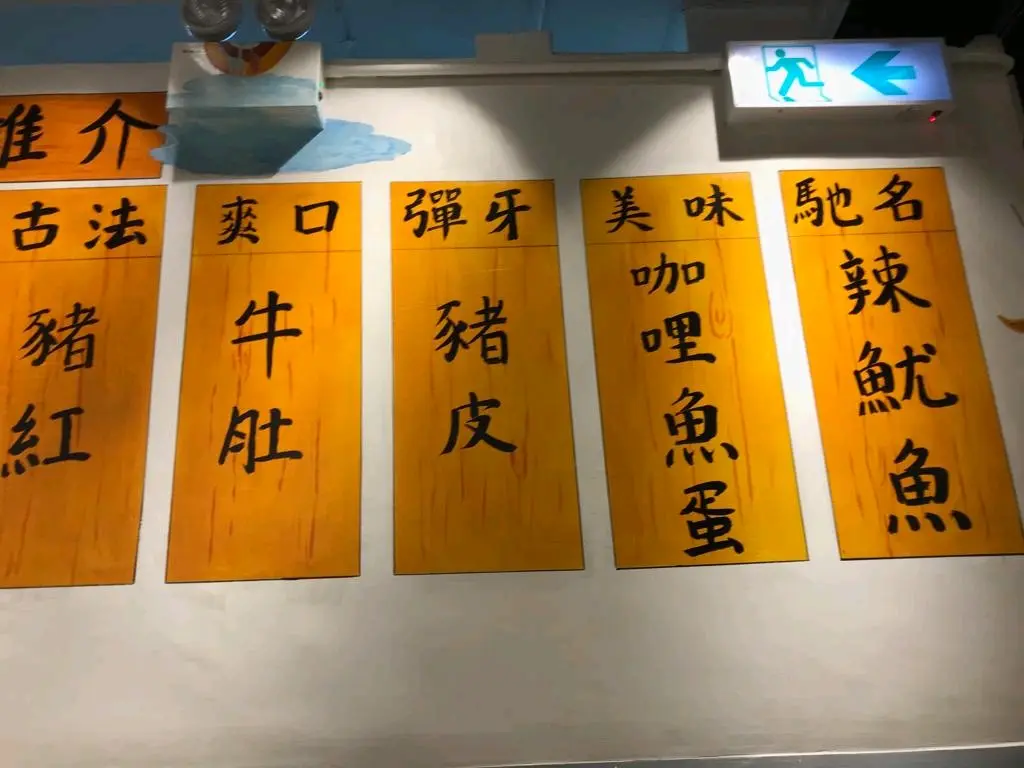 推介
古法
豬紅
爽口
牛肚
彈牙
豬皮
美味
咖哩魚蛋
馳名
辣魷魚